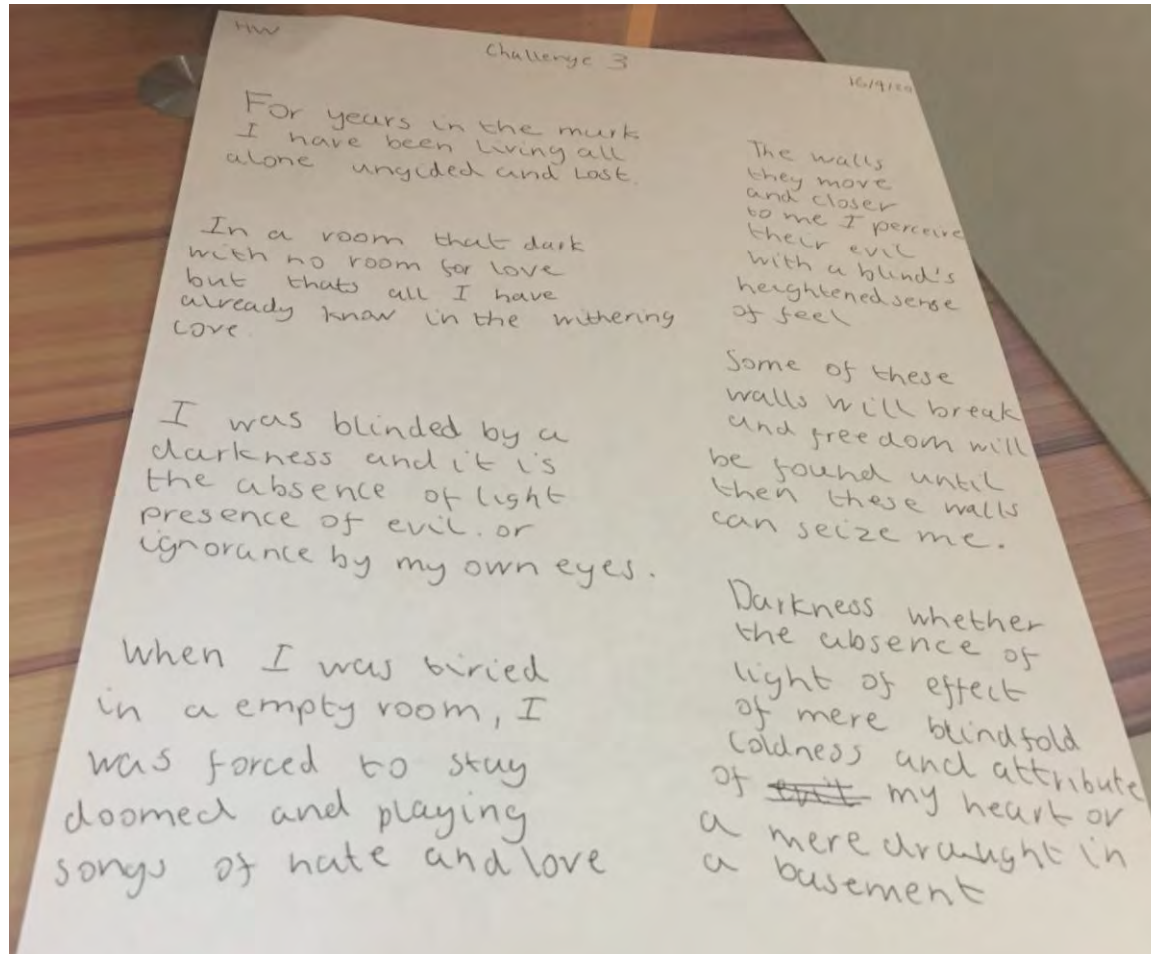 HW
Challenge 3
For years in the murk
I have been living all
alone ungided and Lost.
In a room that dark
with no room for love
but thats all I have
already know in the withering
core.
I was blinded by a
darkness and it is
the absence of light
presence of evil. or
ignorance by my own eyes.
When I was biried
in a empty room, I
was forced to stay
doomed and playing
songs of hate and love
The walls
they move
and closer
to me I perceive
their evil
with a blind's
heightened sense
of feel
Some of these
walls will break
and freedom will
be found until
then these walls
can seize me.
Darkness whether
the absence of
light of effect
of mere blindfold
Coldness and attribute
of evil my heart or
a mere draught in
a basement